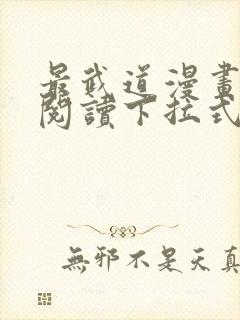 最武道漫畫
閱讀下拉式
無邪不是天真